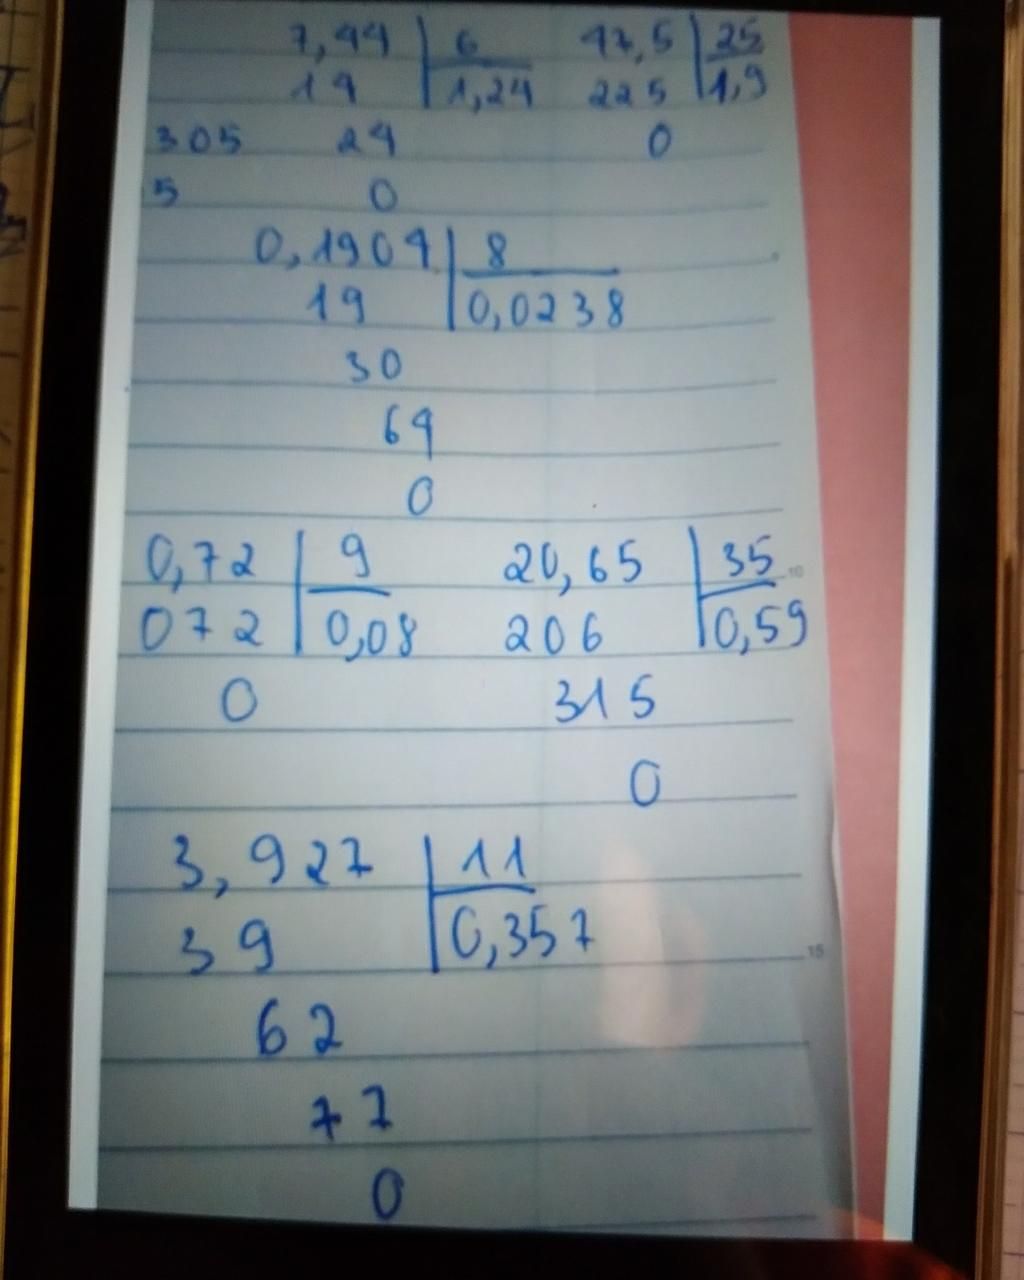 7,44 6 47,5 25
14 1,24 225 1,9
305 24 0
5 0
0,1904 8
19 0,0238
30
64
0
0,72 9 20,65 35 10
072 0,08 206 0,59
0 315
0
3,927 11
39 0,357 15
62
77
0